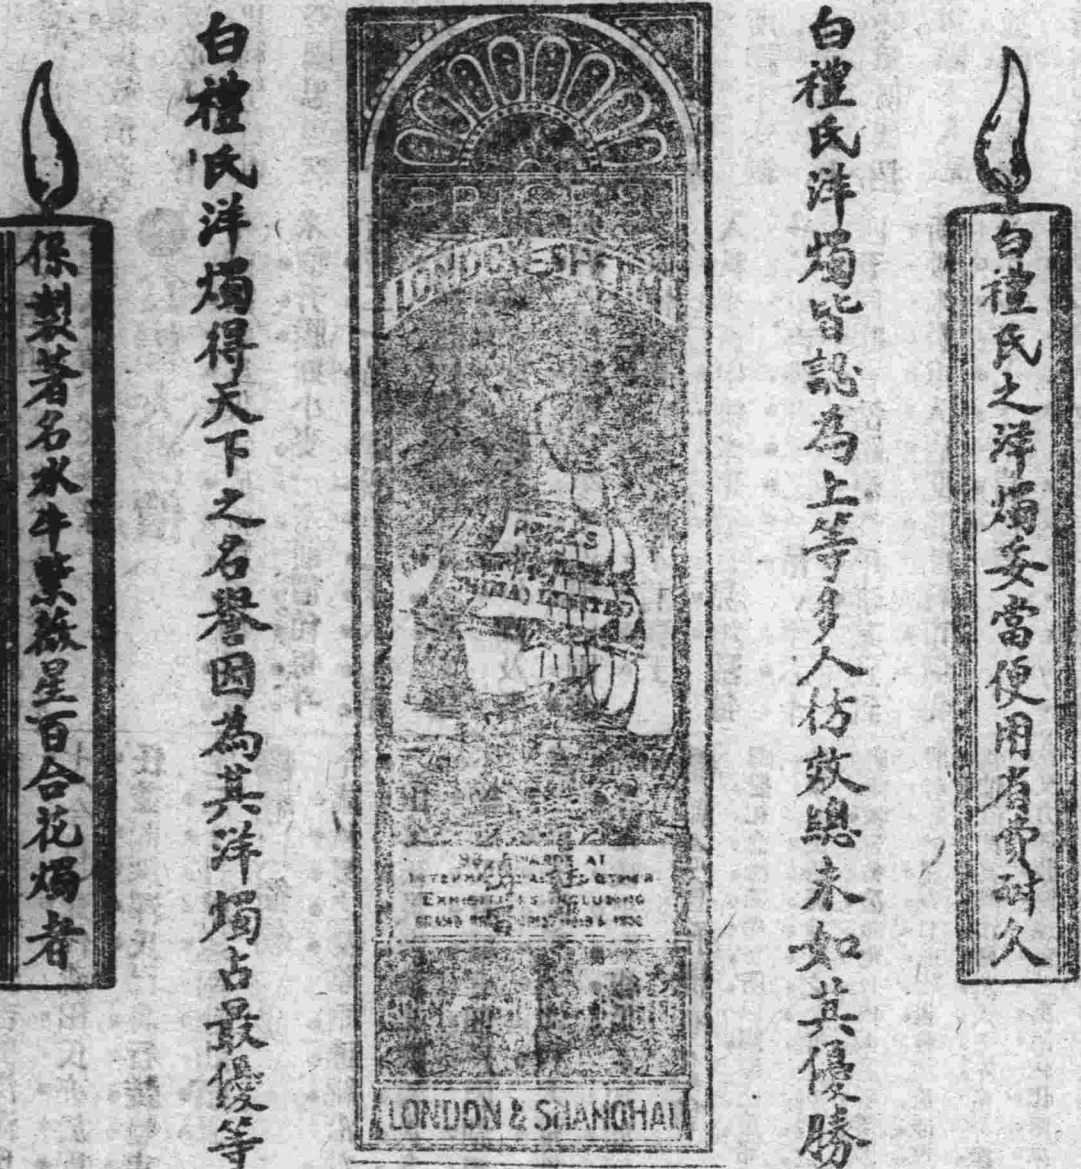 白禮氏之洋燭妥當便用省費耐久
白禮氏洋燭皆認為上等多人仿效總未如其優勝
PRICE'S
LONDON SPERM
PRICE'S
(CHINA) LIMITED
AWARDS AT
INTERNATIONAL & OTHER
EXHIBITIONS INCLUDING
LONDON & SHANGHAI
白禮氏洋燭得天下之名譽因為其洋燭占最優等
保製著名水牛紫薇星百合花燭者